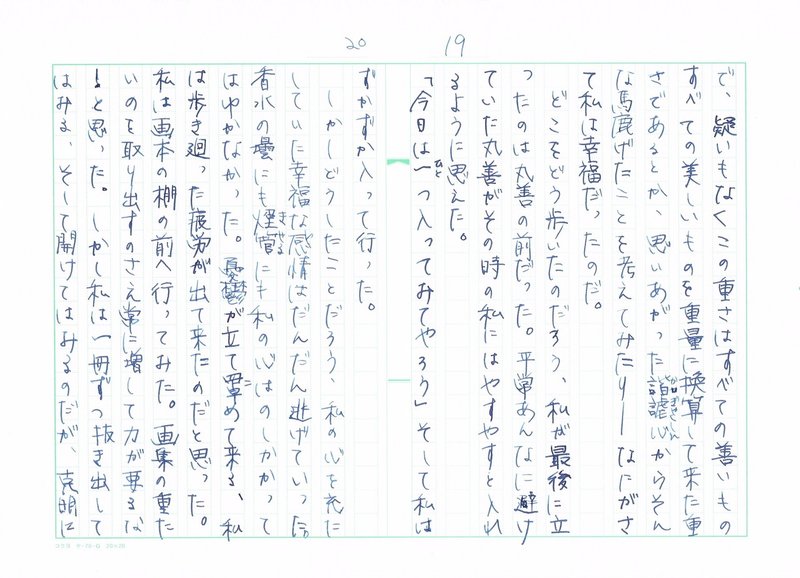 19
で、疑いもなくこの重さはすべての善いもの
すべての美しいものを重量に換算して来た重
さであるとか、思いあがった諧謔心からそん
な馬鹿げたことを考えてみたり――なにがさ
て私は幸福だったのだ。
　どこをどう歩いたのだろう、私が最後に立
ったのは丸善の前だった。平常あんなに避け
ていた丸善がその時の私にはやすやすと入れ
るように思えた。
「今日は一つ入ってみてやろう」そして私は
20
ずかずか入って行った。
　しかしどうしたことだろう、私の心を充た
していた幸福な感情はだんだん逃げていった。
香水の壜にも煙管にも私の心はのしかかって
はゆかなかった。憂鬱が立て罩めて来る、私
は歩き廻った疲労が出て来たのだと思った。
私は画本の棚の前へ行ってみた。画集の重た
いのを取り出すのさえ常に増して力が要るな
！と思った。しかし私は一冊ずつ抜き出して
はみる、そして開けてはみるのだが、克明に
コクヨ ケ-70 20×20